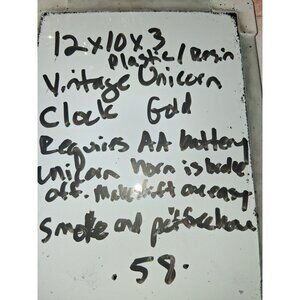 12x10x3
Plastic/Resin
Vintage Unicorn
Clock Gold
Requires AA battery
Unicorn horn is broke
off. Makeshift one easy
Smoke and petfree home
.58.